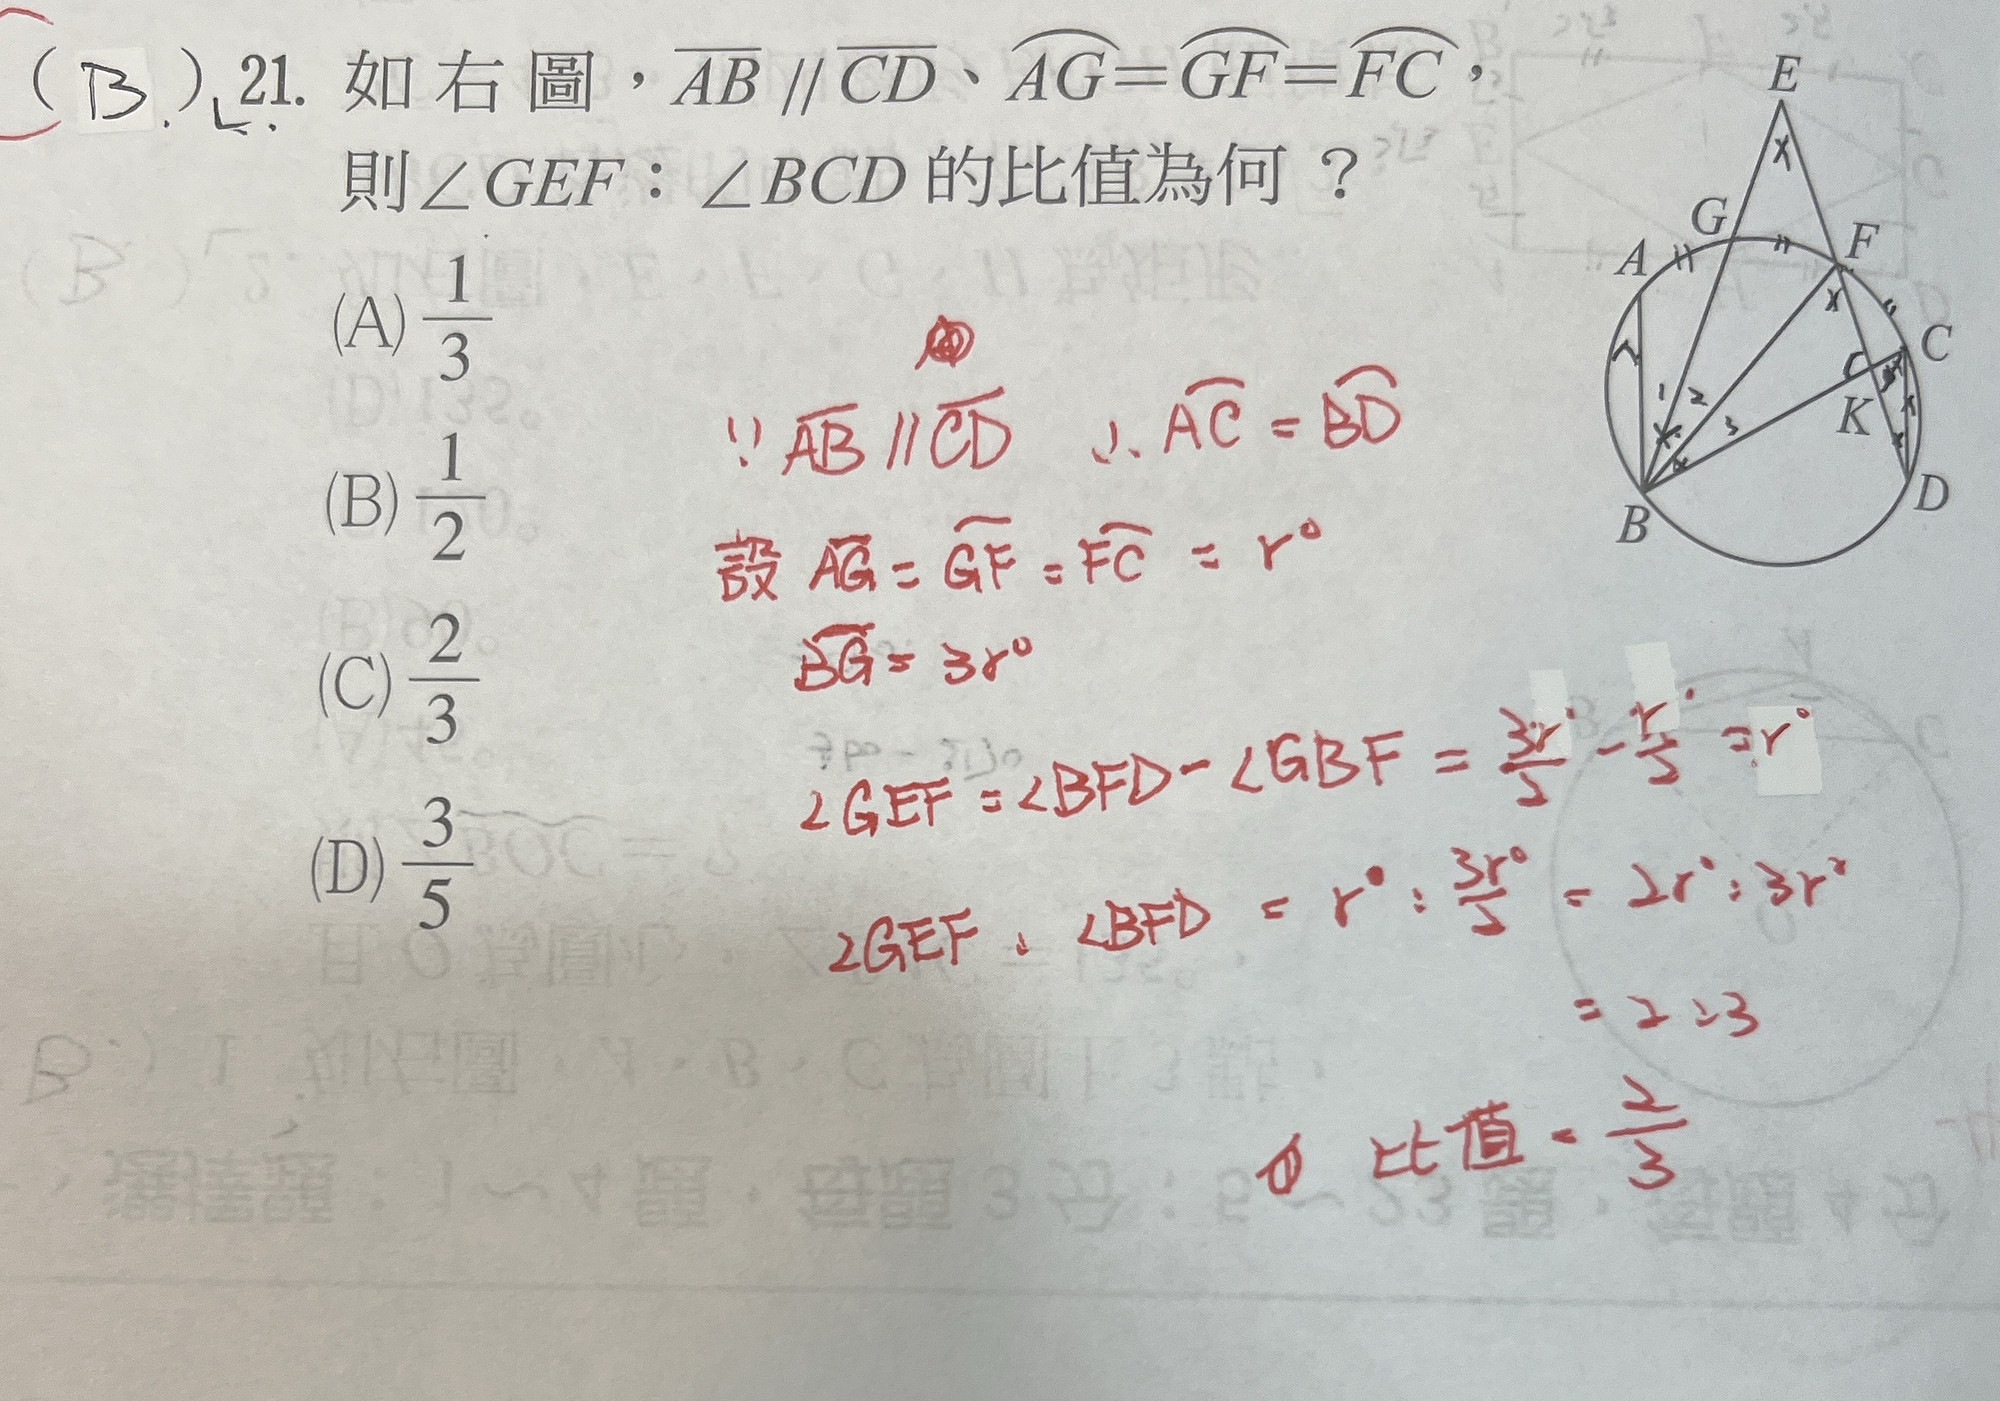 (B) 21. 如右圖，AB // CD、AG=GF=FC，
則∠GEF：∠BCD 的比值為何？
(A) 1/3
(B) 1/2
(C) 2/3
(D) 3/5
E
G
F
A
C
K
B
D
1 2 3
∵ AB // CD ∴ AC = BD
設 AG = GF = FC = r°
BG = 3r°
∠GEF = ∠BFD - ∠GBF = 3r°/2 - r°/2 = r°
∠GEF : ∠BFD = r° : 3r°/2 = 2r° : 3r°
= 2 : 3
比值 = 2/3